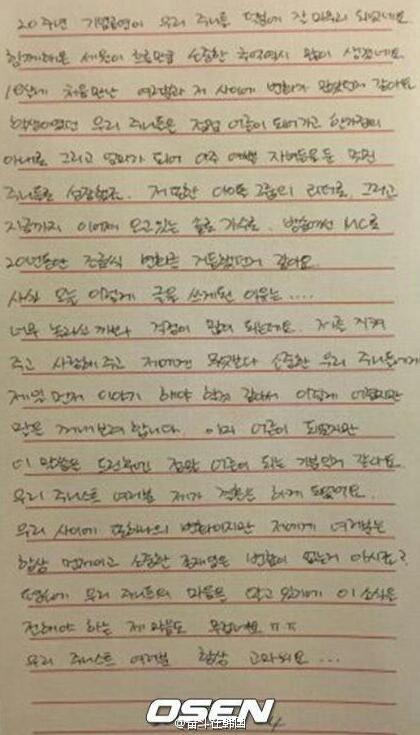 20주년 기념공연이 우리 주니들 덕분에 잘 마무리 되었네요.
함께해온 세월이 흐른만큼 소중한 추억역시 많이 생겼네요.
처음만난 여러분과 저 사이에 변화가 많았던거 같아요
학생이였던 우리 주니들은 점점 어른이 되어가고 한가정의
아내로 그리고 엄마가 되어 아주 예쁜 자녀들을 둔 멋진
주니들로 성장했죠. 저 또한 아이돌 그룹의 리더로, 그리고
지금까지 이어져 오고있는 솔로 가수로, 방송에선 MC로
20년동안 조금씩 변화를 거듭했던거 같아요.
사실 오늘 이렇게 글을 쓰게된 이유는....
너무 놀라실까봐 걱정이 많이 되는데요. 저를 지켜
주고 사랑해주고 저에겐 무엇보다 소중한 우리 주니들에게
제일 먼저 이야기 해야 할것 같아서 이렇게 어렵지만
말을 꺼내보려 합니다. 이미 어른이 되었지만
이 말씀을 드린후엔 정말 어른이 되는 기분인거 같아요.
우리 주니스트 여러분 제가 결혼을 하게 되었어요.
우리 사이에 또하나의 변화이지만 저에게 여러분은
항상 먼저이고 소중한 존재임은 변함이 없는거 아시죠?
우리 주니들의 마음을 알고 있기에 이 소식을
전해야 하는 제 마음도 무겁네요 ㅠㅠ
우리 주니스트 여러분 항상 고마워요...
OSEN
@奋斗在韩国